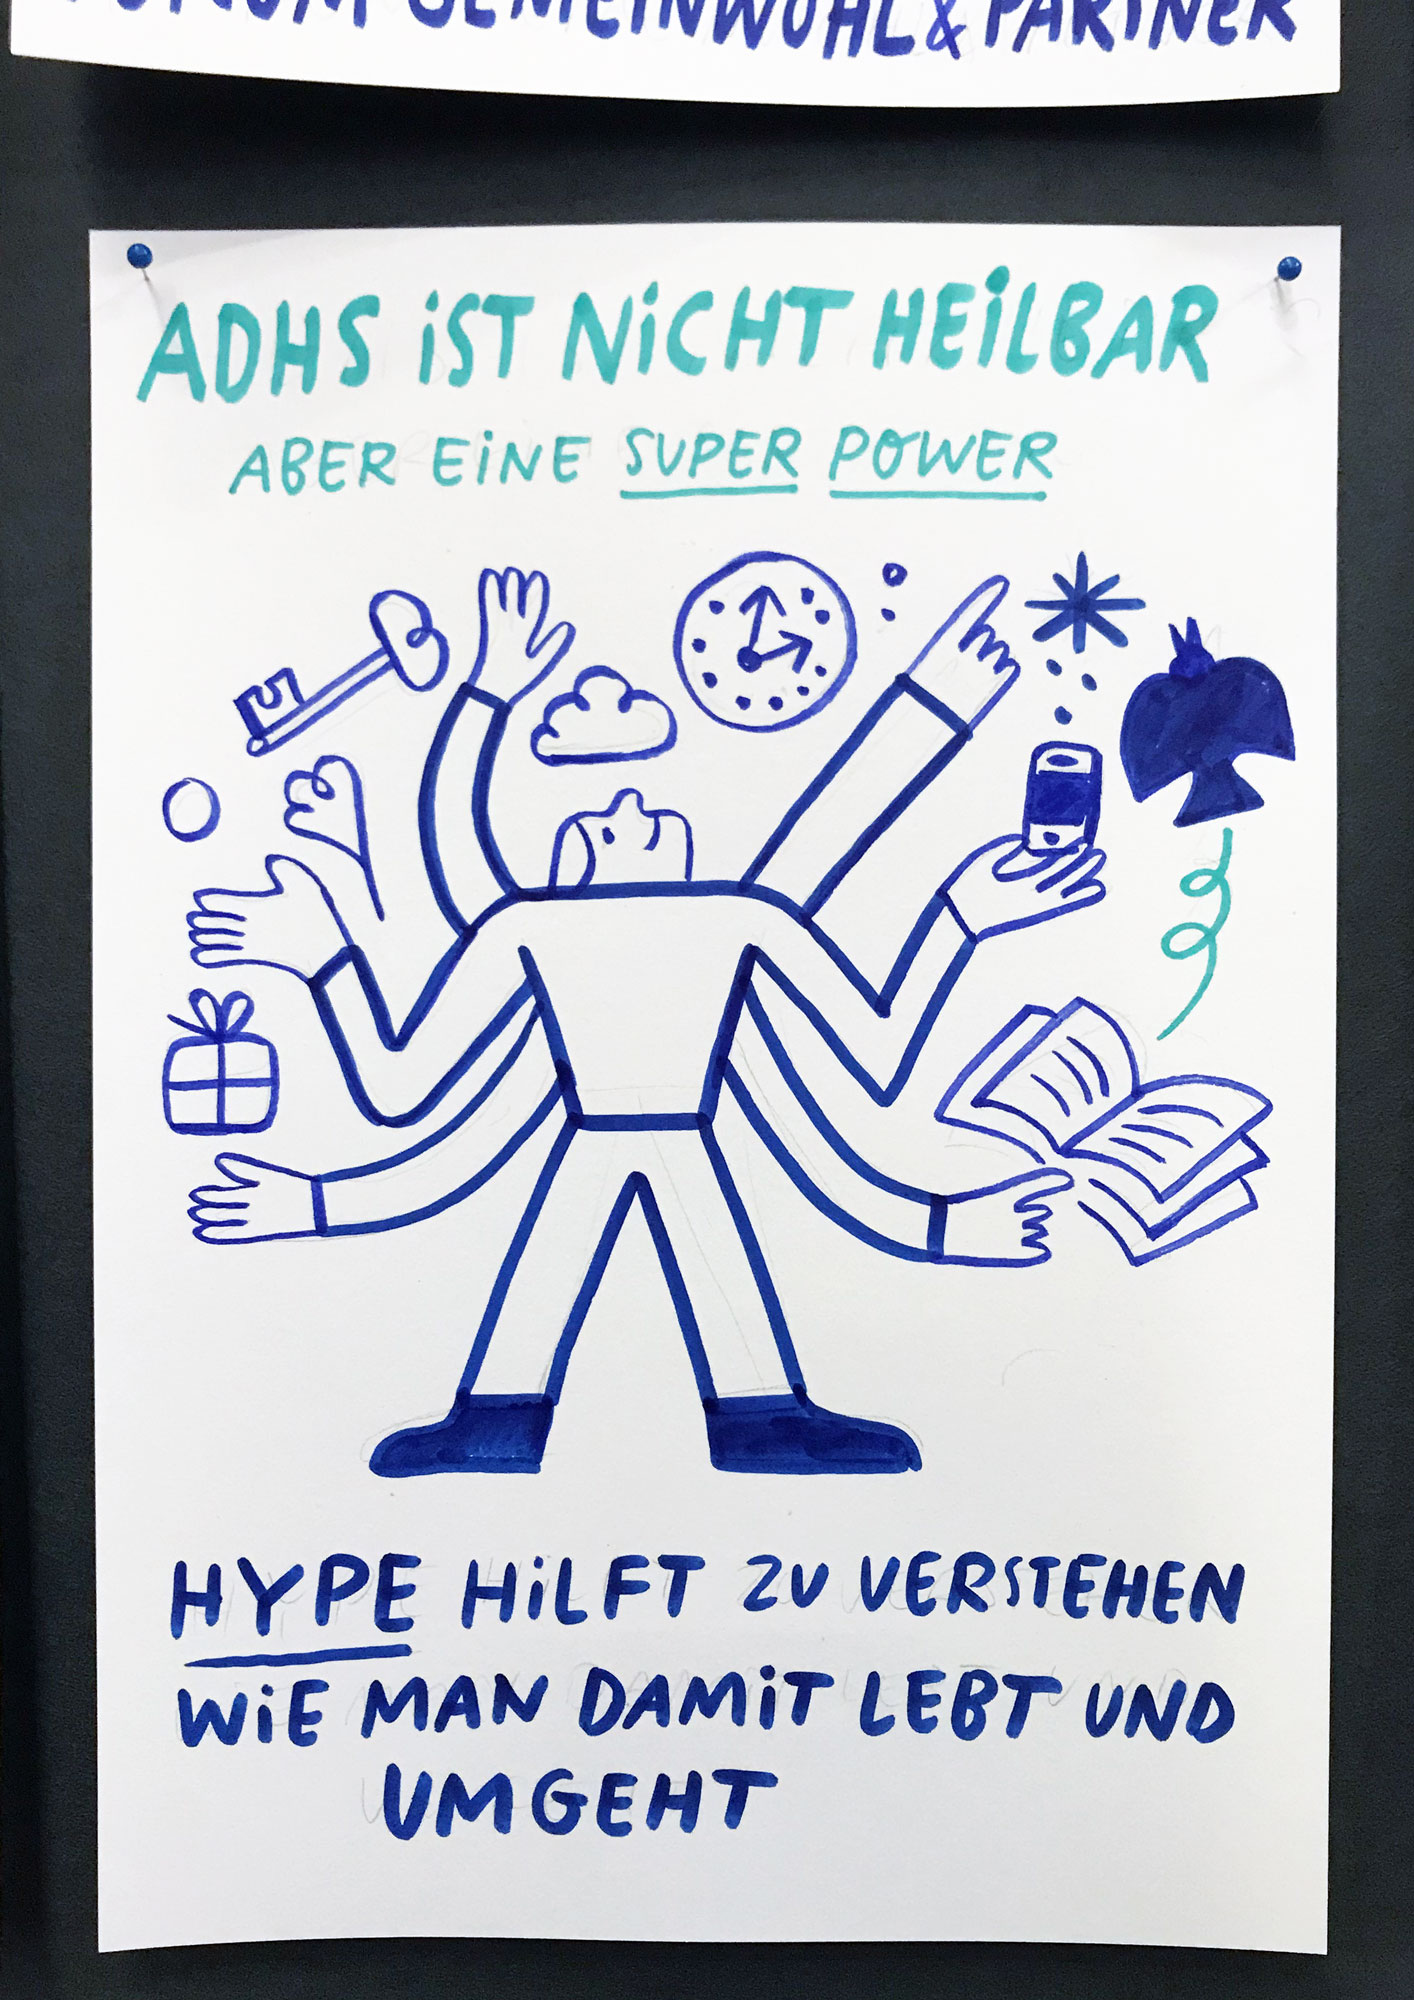 GEMEINWOHL & PARTNER
ADHS iST NiCHT HEiLBAR
ABER EiNE SUPER POWER
HYPE HiLFT ZU VERSTEHEN
WiE MAN DAMiT LEBT UND
UMGEHT